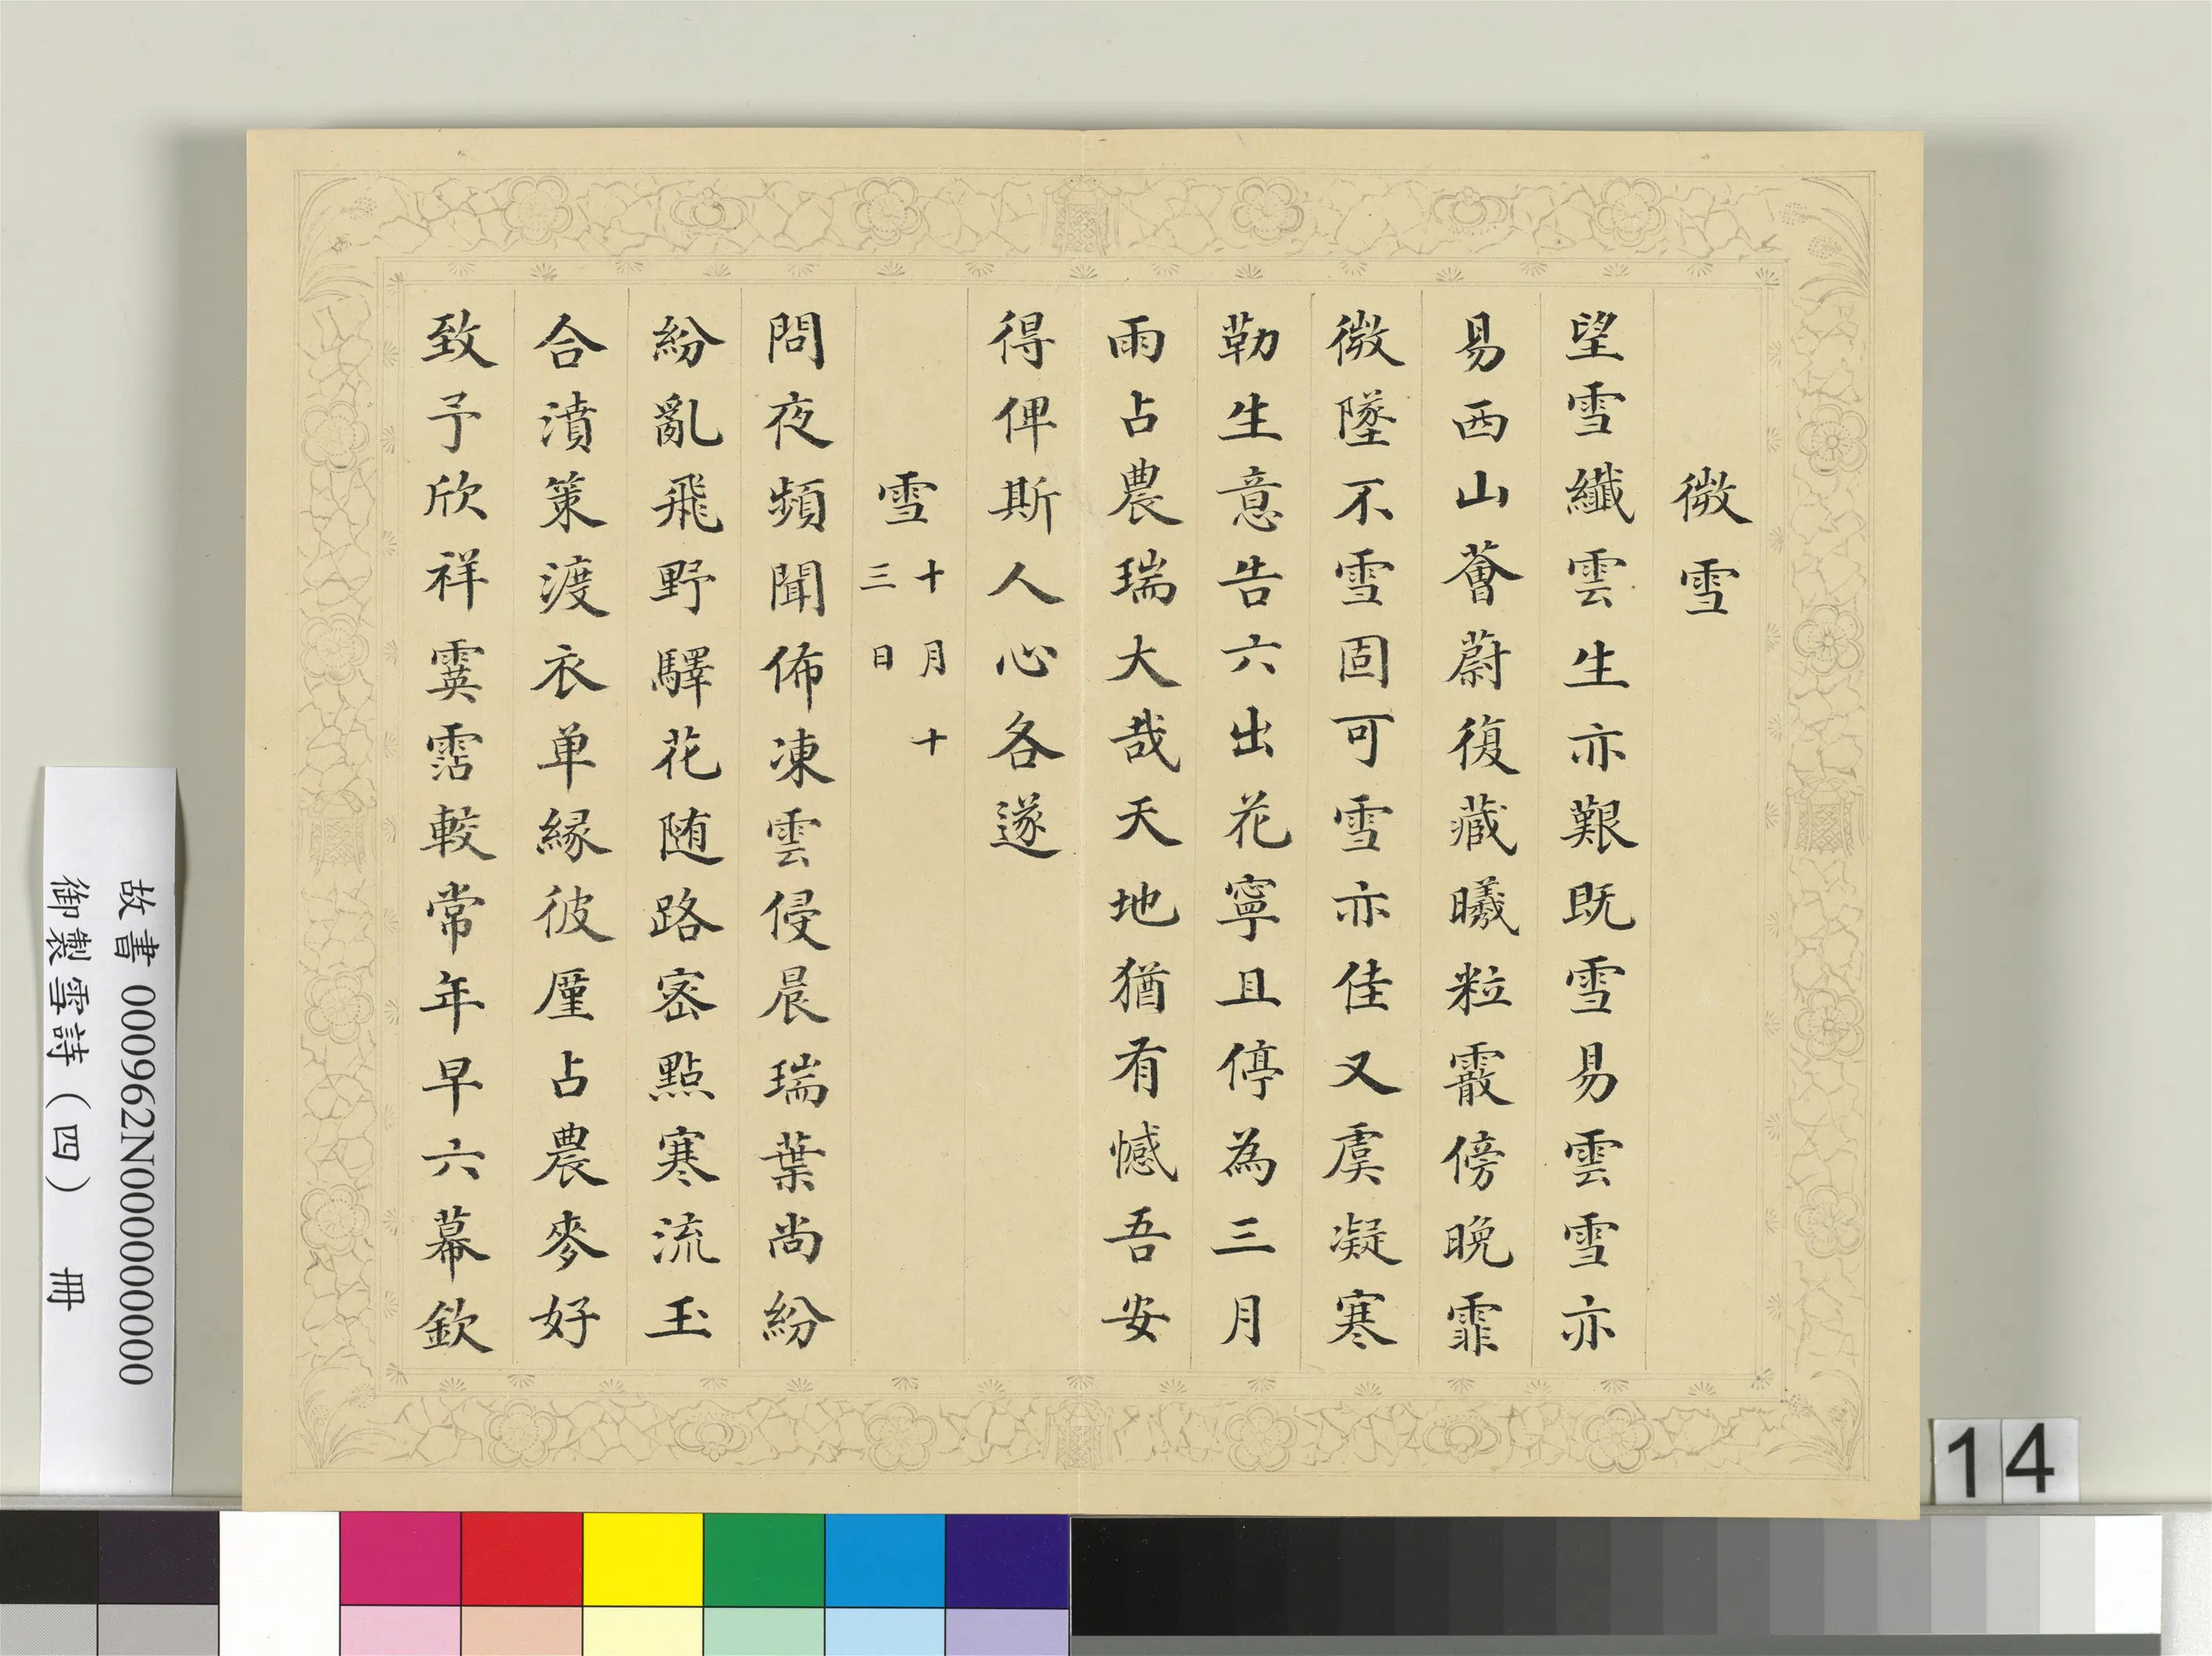 微雪
望雪纖雲生亦艱既雪易雲雪亦
易西山薈蔚復藏曦粒霰傍晚霏
微墜不雪固可雪亦佳又虞凝寒
勒生意告六出花寧且停為三月
雨占農瑞大哉天地猶有憾吾安
得俾斯人心各遂
雪十月十
三日
問夜頻聞佈凍雲侵晨瑞葉尚紛
紛亂飛野驛花随路密點寒流玉
合漬策渡衣单緣彼厪占農麥好
致予欣祥霙霑較常年早六幕欽
故書 000962N000000000
御製雪詩（四） 冊
14